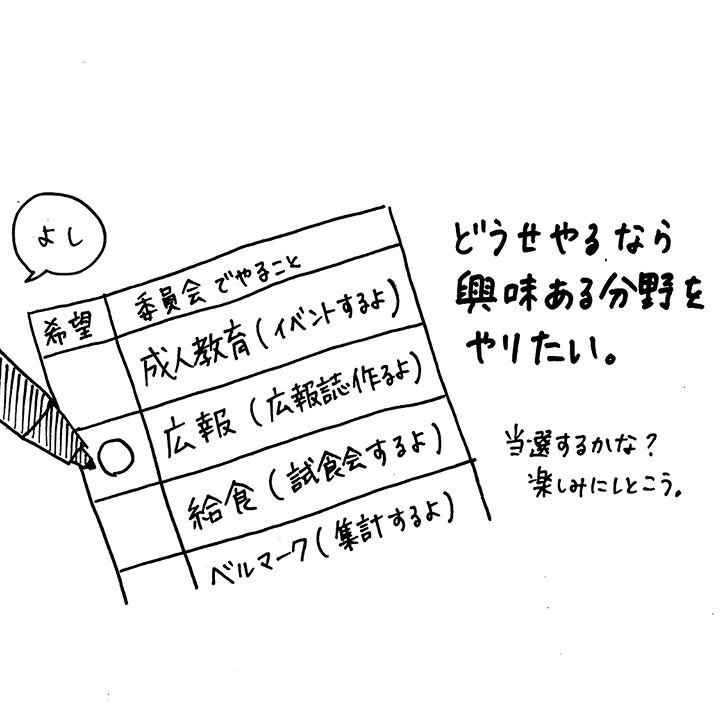 よし
希望 委員会でやること
成人教育(イベントするよ)
広報(広報誌作るよ)
給食(試食会するよ)
ベルマーク(集計するよ)
どうせやるなら
興味ある分野を
やりたい。
当選するかな?
楽しみにしとこう。